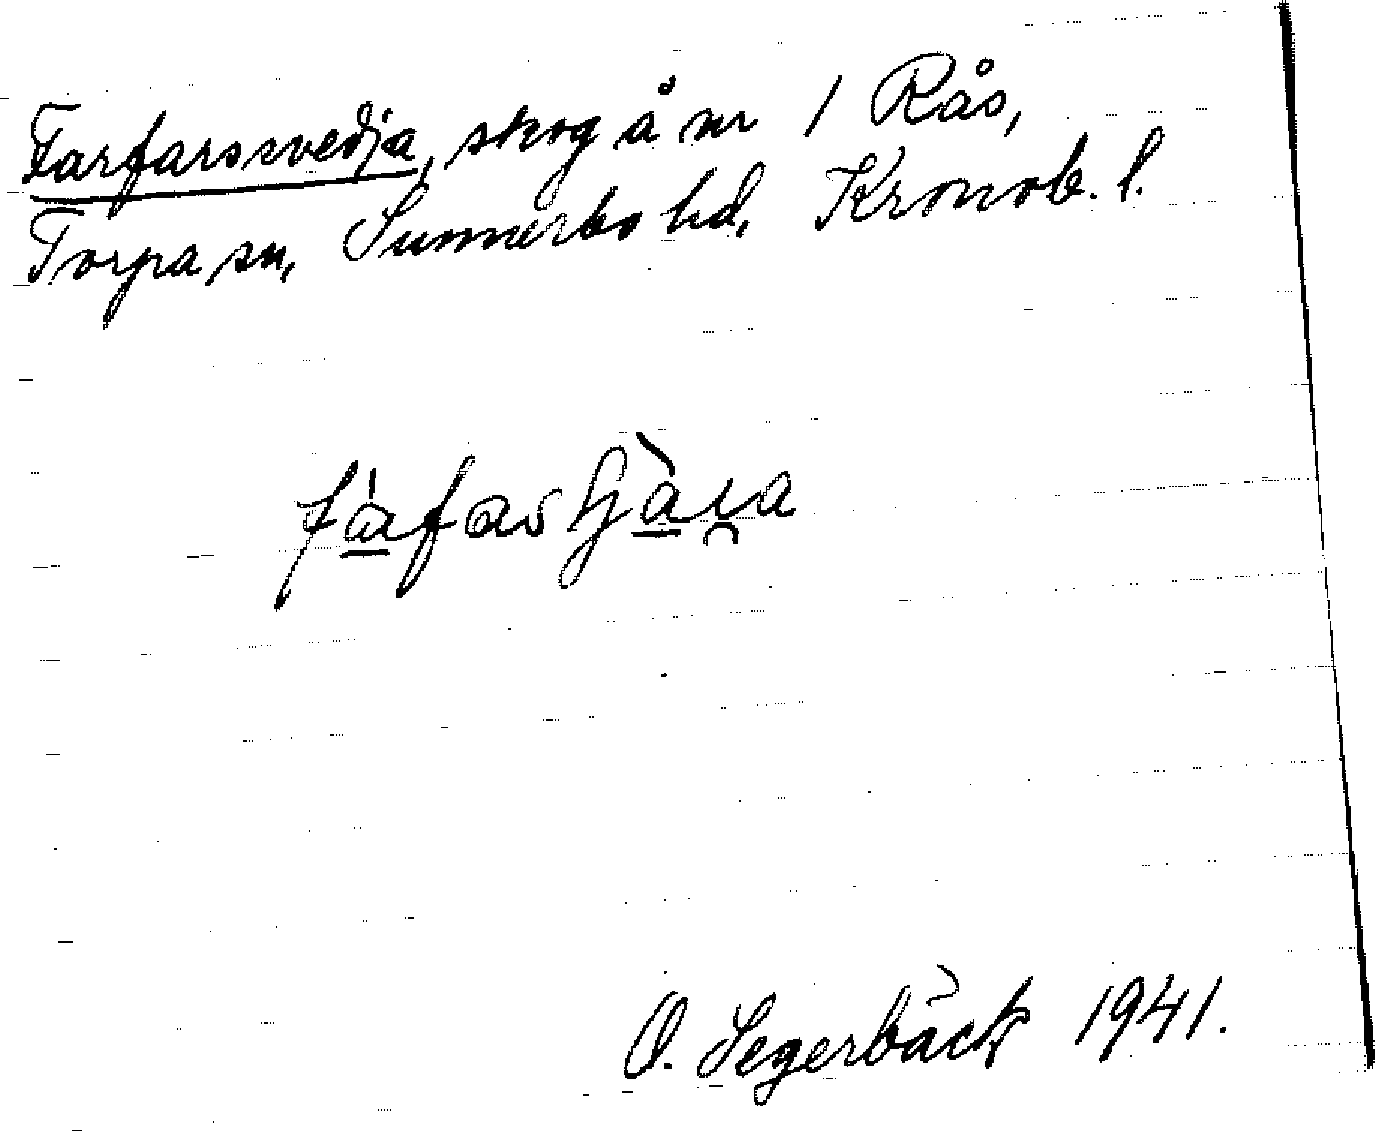 Farfarssvedja, skog å nr 1 Rås,
Torpa sn, Sunnerbo hd, Kronob. l.
O. Segerbäck 1941.